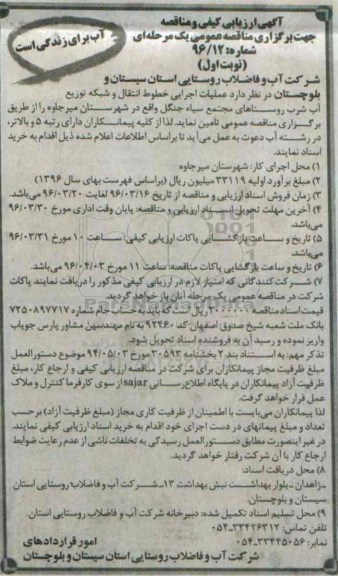 آگهی ارزیابی کیفی و مناقصه
جهت برگزاری مناقصه عمومی یک مرحله‌ای
شماره: ۹۶/۱۲
(نوبت اول)
آب برای زندگی است
شرکت آب و فاضلاب روستایی استان سیستان و
بلوچستان در نظر دارد عملیات اجرایی خطوط انتقال و شبکه توزیع
آب شرب روستاهای مجتمع سیاه جنگل واقع در شهرستان میرجاوه را از طریق
برگزاری مناقصه عمومی تامین نماید. لذا از کلیه پیمانکاران دارای رتبه ۵ و بالاتر،
در رشته آب دعوت به عمل می‌آید تا براساس اطلاعات اعلام شده ذیل اقدام به خرید
اسناد نمایند.
۱) محل اجرای کار: شهرستان میرجاوه
۲) مبلغ برآورد اولیه ۳۳۱۱۹ میلیون ریال (براساس فهرست بهای سال ۱۳۹۶)
۳) زمان فروش اسناد ارزیابی و مناقصه: از تاریخ ۹۶/۰۳/۱۶ لغایت ۹۶/۰۳/۲۰ می‌باشد.
۴) آخرین مهلت تحویل اسناد ارزیابی و مناقصه: پایان وقت اداری مورخ ۹۶/۰۳/۳۰
می‌باشد.
۵) تاریخ و ساعت بازگشایی پاکات ارزیابی کیفی: ساعت ۱۰ مورخ ۹۶/۰۳/۳۱
می‌باشد.
۶) تاریخ و ساعت بازگشایی پاکات مناقصه: ساعت ۱۱ مورخ ۹۶/۰۴/۰۳ می‌باشد.
۷) شرکت‌کنندگانی که امتیاز لازم در ارزیابی کیفی مذکور را دریافت نمایند پاکات
شرکت در مناقصه عمومی یک مرحله‌ای آنان باز خواهد گردید.
قیمت اسناد مناقصه ریال است که باید به حساب جام شماره ۷۲۵۰۸۹۷۷۱۷
بانک ملت شعبه شیخ صدوق اصفهان کد ۹۲۴۶۰ به نام مهندسین مشاور پارس جویاب
واریز نموده و رسید آن به فروشنده اسناد تحویل شود.
تذکر مهم: به استناد بند ۲ بخشنامه ۳۰۵۹۳ مورخ ۹۴/۰۵/۰۳ موضوع دستورالعمل
مبلغ ظرفیت مجاز پیمانکاران برای شرکت در مناقصه ارزیابی کیفی و ارجاع کار، مبلغ
ظرفیت آزاد پیمانکاران در پایگاه اطلاع‌رسانی sajar از سوی کارفرما کنترل و ملاک
عمل قرار خواهد گرفت.
لذا پیمانکاران می‌بایست با اطمینان از ظرفیت کاری مجاز (مبلغ ظرفیت آزاد) بر حسب
تعداد و مبلغ پیمانهای در دست اجرای خود اقدام به خرید اسناد ارزیابی کیفی نمایند.
در غیر اینصورت مطابق دستورالعمل رسیدگی به تخلفات ناشی از عدم رعایت ضوابط
ارجاع کار با آن شرکت رفتار خواهد گردید.
۸) محل دریافت اسناد:
-زاهدان -بلوار بهداشت نبش بهداشت ۱۳-شرکت آب و فاضلاب روستایی استان
سیستان و بلوچستان.
۹) محل تسلیم اسناد تکمیل شده: دبیرخانه شرکت آب و فاضلاب روستایی استان.
تلفن تماس: ۳۳۴۲۶۳۱۲-۰۵۴
نمابر: ۳۳۴۴۵۰۵۶-۰۵۴
امور قراردادهای
شرکت آب و فاضلاب روستایی استان سیستان و بلوچستان